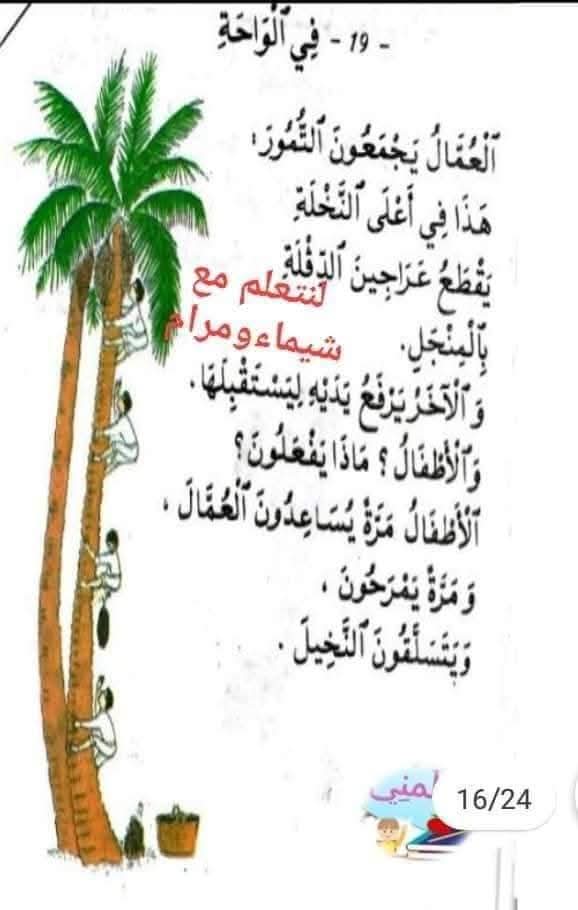 - 19 - فِي ٱلْوَاحَةِ
ٱلْعُمَّالُ يَجْمَعُونَ ٱلتُّمُورَ،
هَذَا فِي أَعْلَى ٱلنَّخْلَةِ
يَقْطَعُ عَرَاجِينَ ٱلدِّقْلَةِ
لنتعلم مع
شيماء ومرام
بِٱلْمِنْجَلِ.
وَٱلْآخَرُ يَرْفَعُ يَدَيْهِ لِيَسْتَقْبِلَهَا.
وَٱلْأَطْفَالُ؟ مَاذَا يَفْعَلُونَ؟
ٱلْأَطْفَالُ مَرَّةً يُسَاعِدُونَ ٱلْعُمَّالَ،
وَمَرَّةً يَمْرَحُونَ،
وَيَتَسَلَّقُونَ ٱلنَّخِيلَ.
16/24